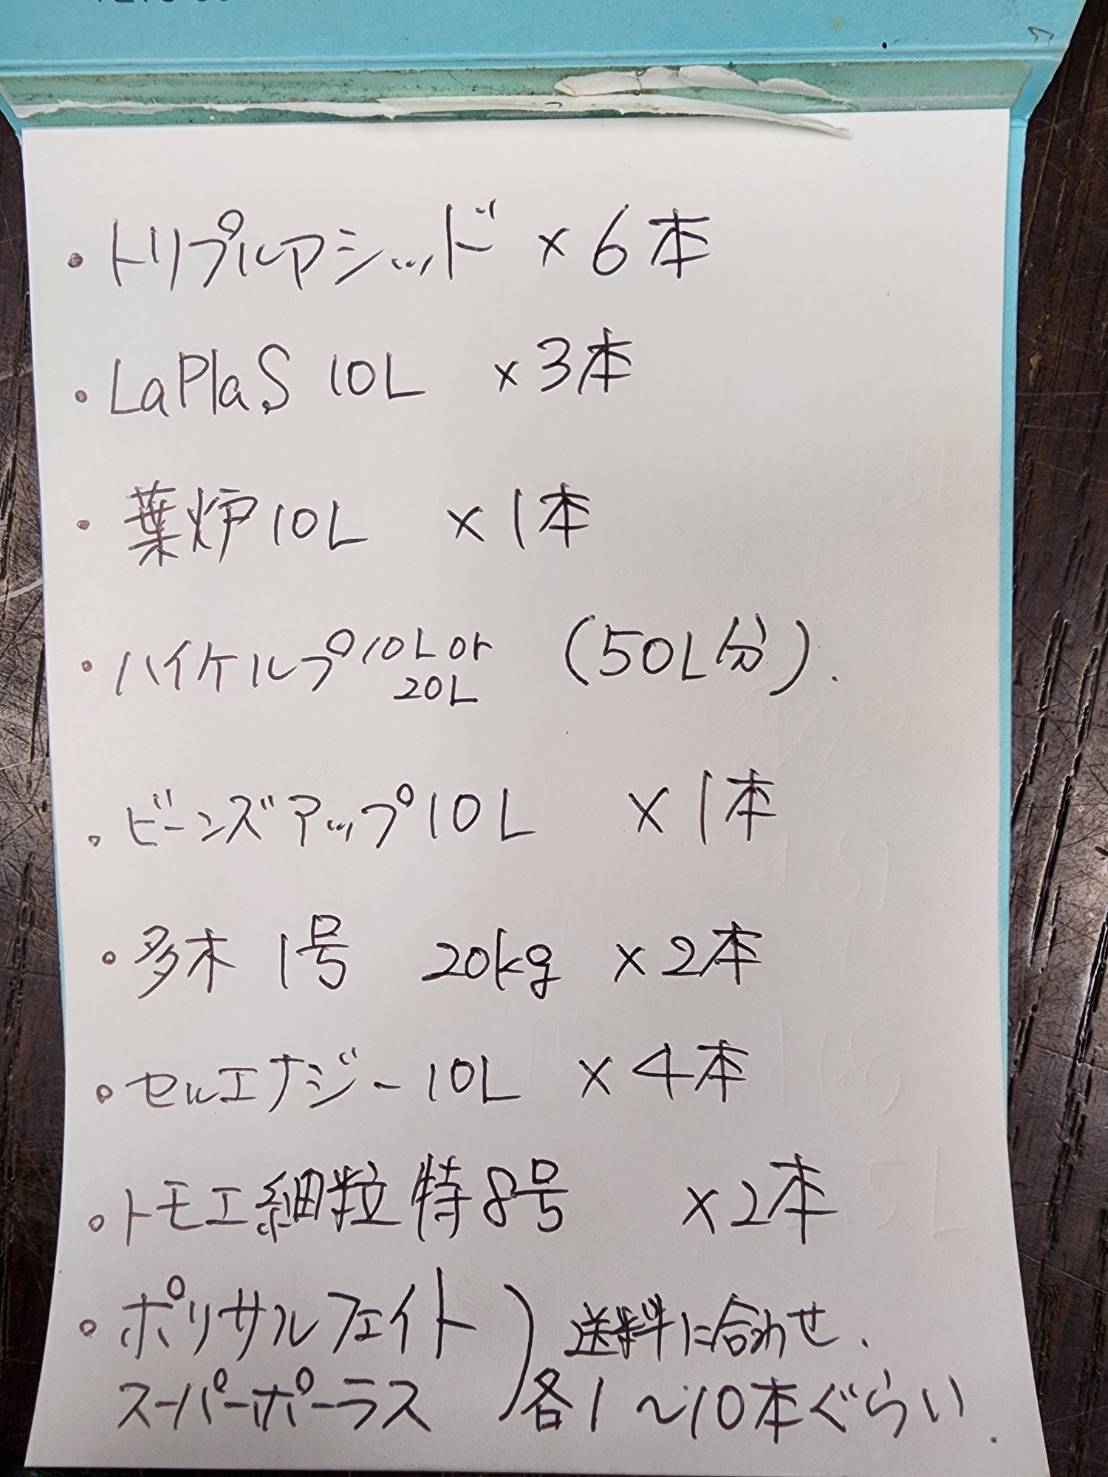 ・トリプルアシッド ×6本
・LaPlaS 10L ×3本
・葉炉10L ×1本
・ハイケルプ10L or 20L (50L分).
・ビーンズアップ10L ×1本
・多木 1号 20kg ×2本
・セルエナジー10L ×4本
・トモエ細粒特8号 ×2本
・ポリサルフェイト ) 送料に合わせ.
スーパーポーラス 各1〜10本ぐらい.